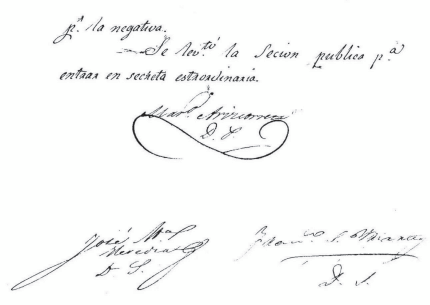 p.ª la negativa.
Se lev.tó la Secion publica p.ª
entrar en secreta estraordinaria.
Mar.º Arizcorreta
D. P.
José M.ª
Heredia
D. S.
D. S.